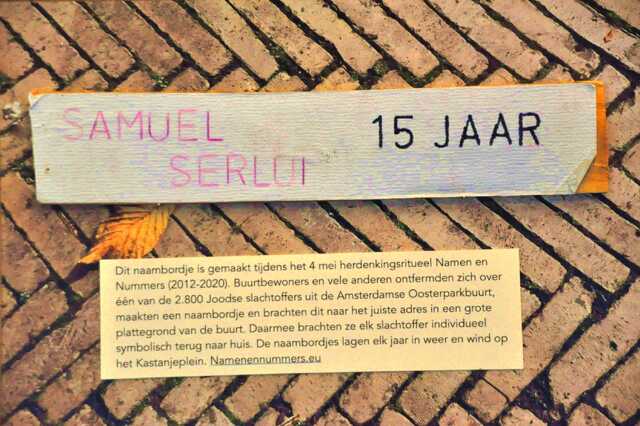 SAMUEL 15 JAAR
SERLUI
Dit naambordje is gemaakt tijdens het 4 mei herdenkingsritueel Namen en
Nummers (2012-2020). Buurtbewoners en vele anderen ontfermden zich over
één van de 2.800 Joodse slachtoffers uit de Amsterdamse Oosterparkbuurt,
maakten een naambordje en brachten dit naar het juiste adres in een grote
plattegrond van de buurt. Daarmee brachten ze elk slachtoffer individueel
symbolisch terug naar huis. De naambordjes lagen elk jaar in weer en wind op
het Kastanjeplein. Namenennummers.eu